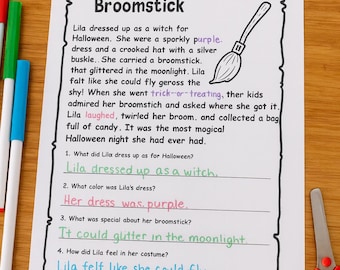 Broomstick
Lila dressed up as a witch for
Halloween. She were a sparkly purple.
dress and a crooked hat with a silver
buskle. She carried a broomstick.
that glittered in the moonlight. Lila
felt like she could fly geross the
shy! When she went trick-or-treating, ther kids
admired her broomstick and asked where she got it.
Lila laughed, twirled her broom. and collected a bag
full of candy. It was the most magical
Halloween night she had ever had.
1. What did Lila dress up as for Halloween?
Lila dressed up as a witch.
2. What color was Lila's dress?
Her dress was purple.
3. What was special about her broomstick?
It could glitter in the moonlight.
4. How did Lila feel in her costume?
Lila felt like she could fly